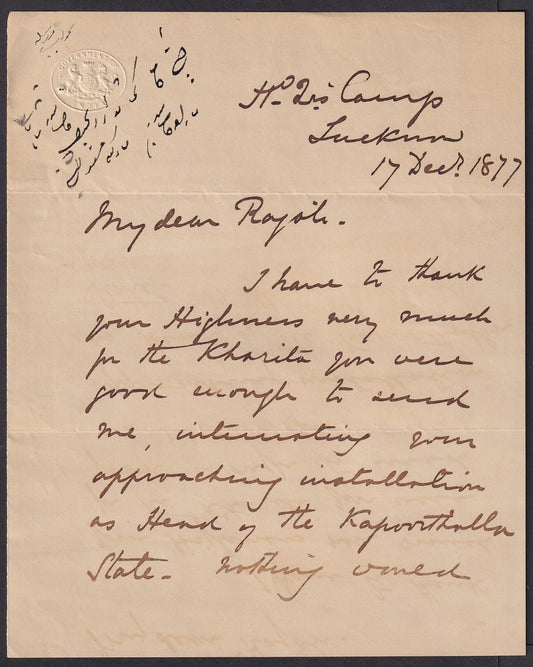 GOVERNMENT
Hd Qrs Camp
Lucknow
17 Decr. 1877
My dear Rajah.
I have to thank
your Highness very much
for the Kharita you were
good enough to send
me, intimating your
approaching installation
as Head of the Kapoorthalla
State. Nothing would